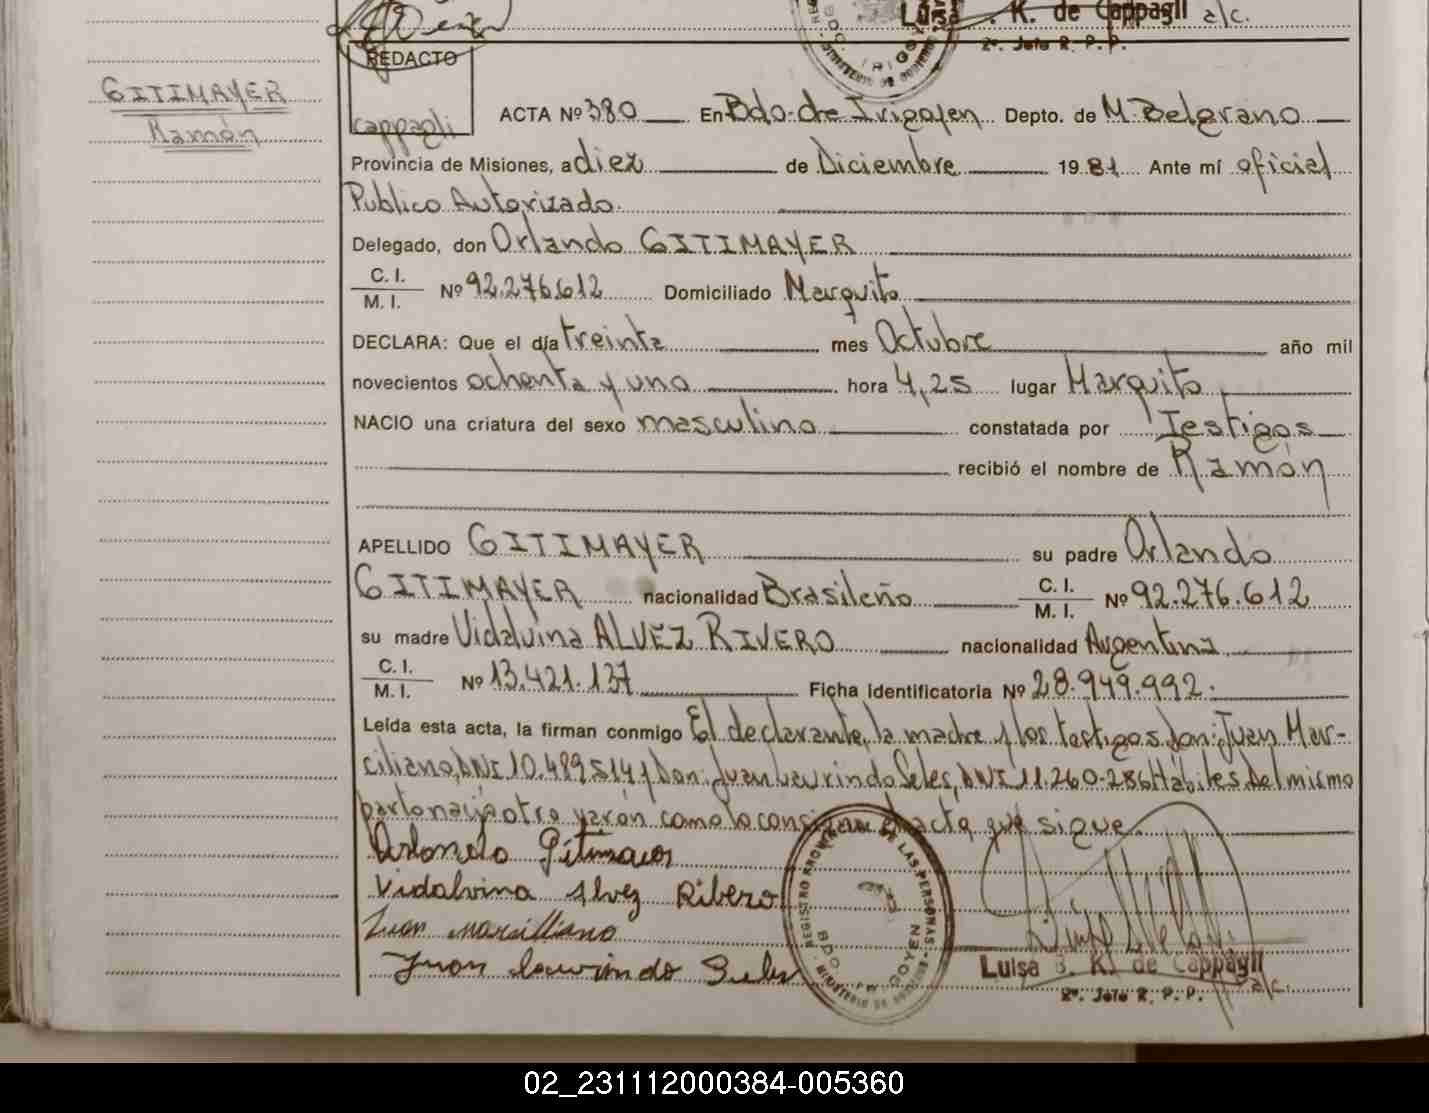 Luisa . K. de Cappagli a/c.
2º. Jefe R. P. P.
REDACTO
cappagli
GITIMAYER
Ramón
ACTA Nº 380 En Bdo. de Irigoyen Depto. de M. Belgrano
Provincia de Misiones, a diez de Diciembre 1981 Ante mí oficial
Publico Autorizado.
Delegado, don Orlando GITIMAYER
C. I.
M. I. Nº 92.276.612 Domiciliado Marquito
DECLARA: Que el día treinta mes Octubre año mil
novecientos ochenta y uno hora 4,25 lugar Marquito
NACIO una criatura del sexo masculino constatada por Testigos
recibió el nombre de Ramón
APELLIDO GITIMAYER su padre Orlando
GITIMAYER nacionalidad Brasileño C. I.
M. I. Nº 92.276.612
su madre Vidalvina ALVEZ RIVERO nacionalidad Argentina
C. I.
M. I. Nº 13.421.137 Ficha identificatoria Nº 28.949.992.
Leída esta acta, la firman conmigo El declarante, la madre y los testigos don: Juan Mar-
ciliano, DNI 10.489514 y Don: Juan Laurindo Seles, DNI 11.260.286 Hábiles. Del mismo
parto nacio otro varón como lo consigna el acta que sigue.
Orlando Gitimaier
Vidalvina Alvez Ribero
Juan marcilliano
Juan laurindo Seles
REGISTRO PROVINCIAL DE LAS PERSONAS
BDO. IRIGOYEN
MINISTERIO DE GOBIERNO
Luisa B. K. de Cappagli
2º. Jefe R. P. P. a/c.
02_231112000384-005360